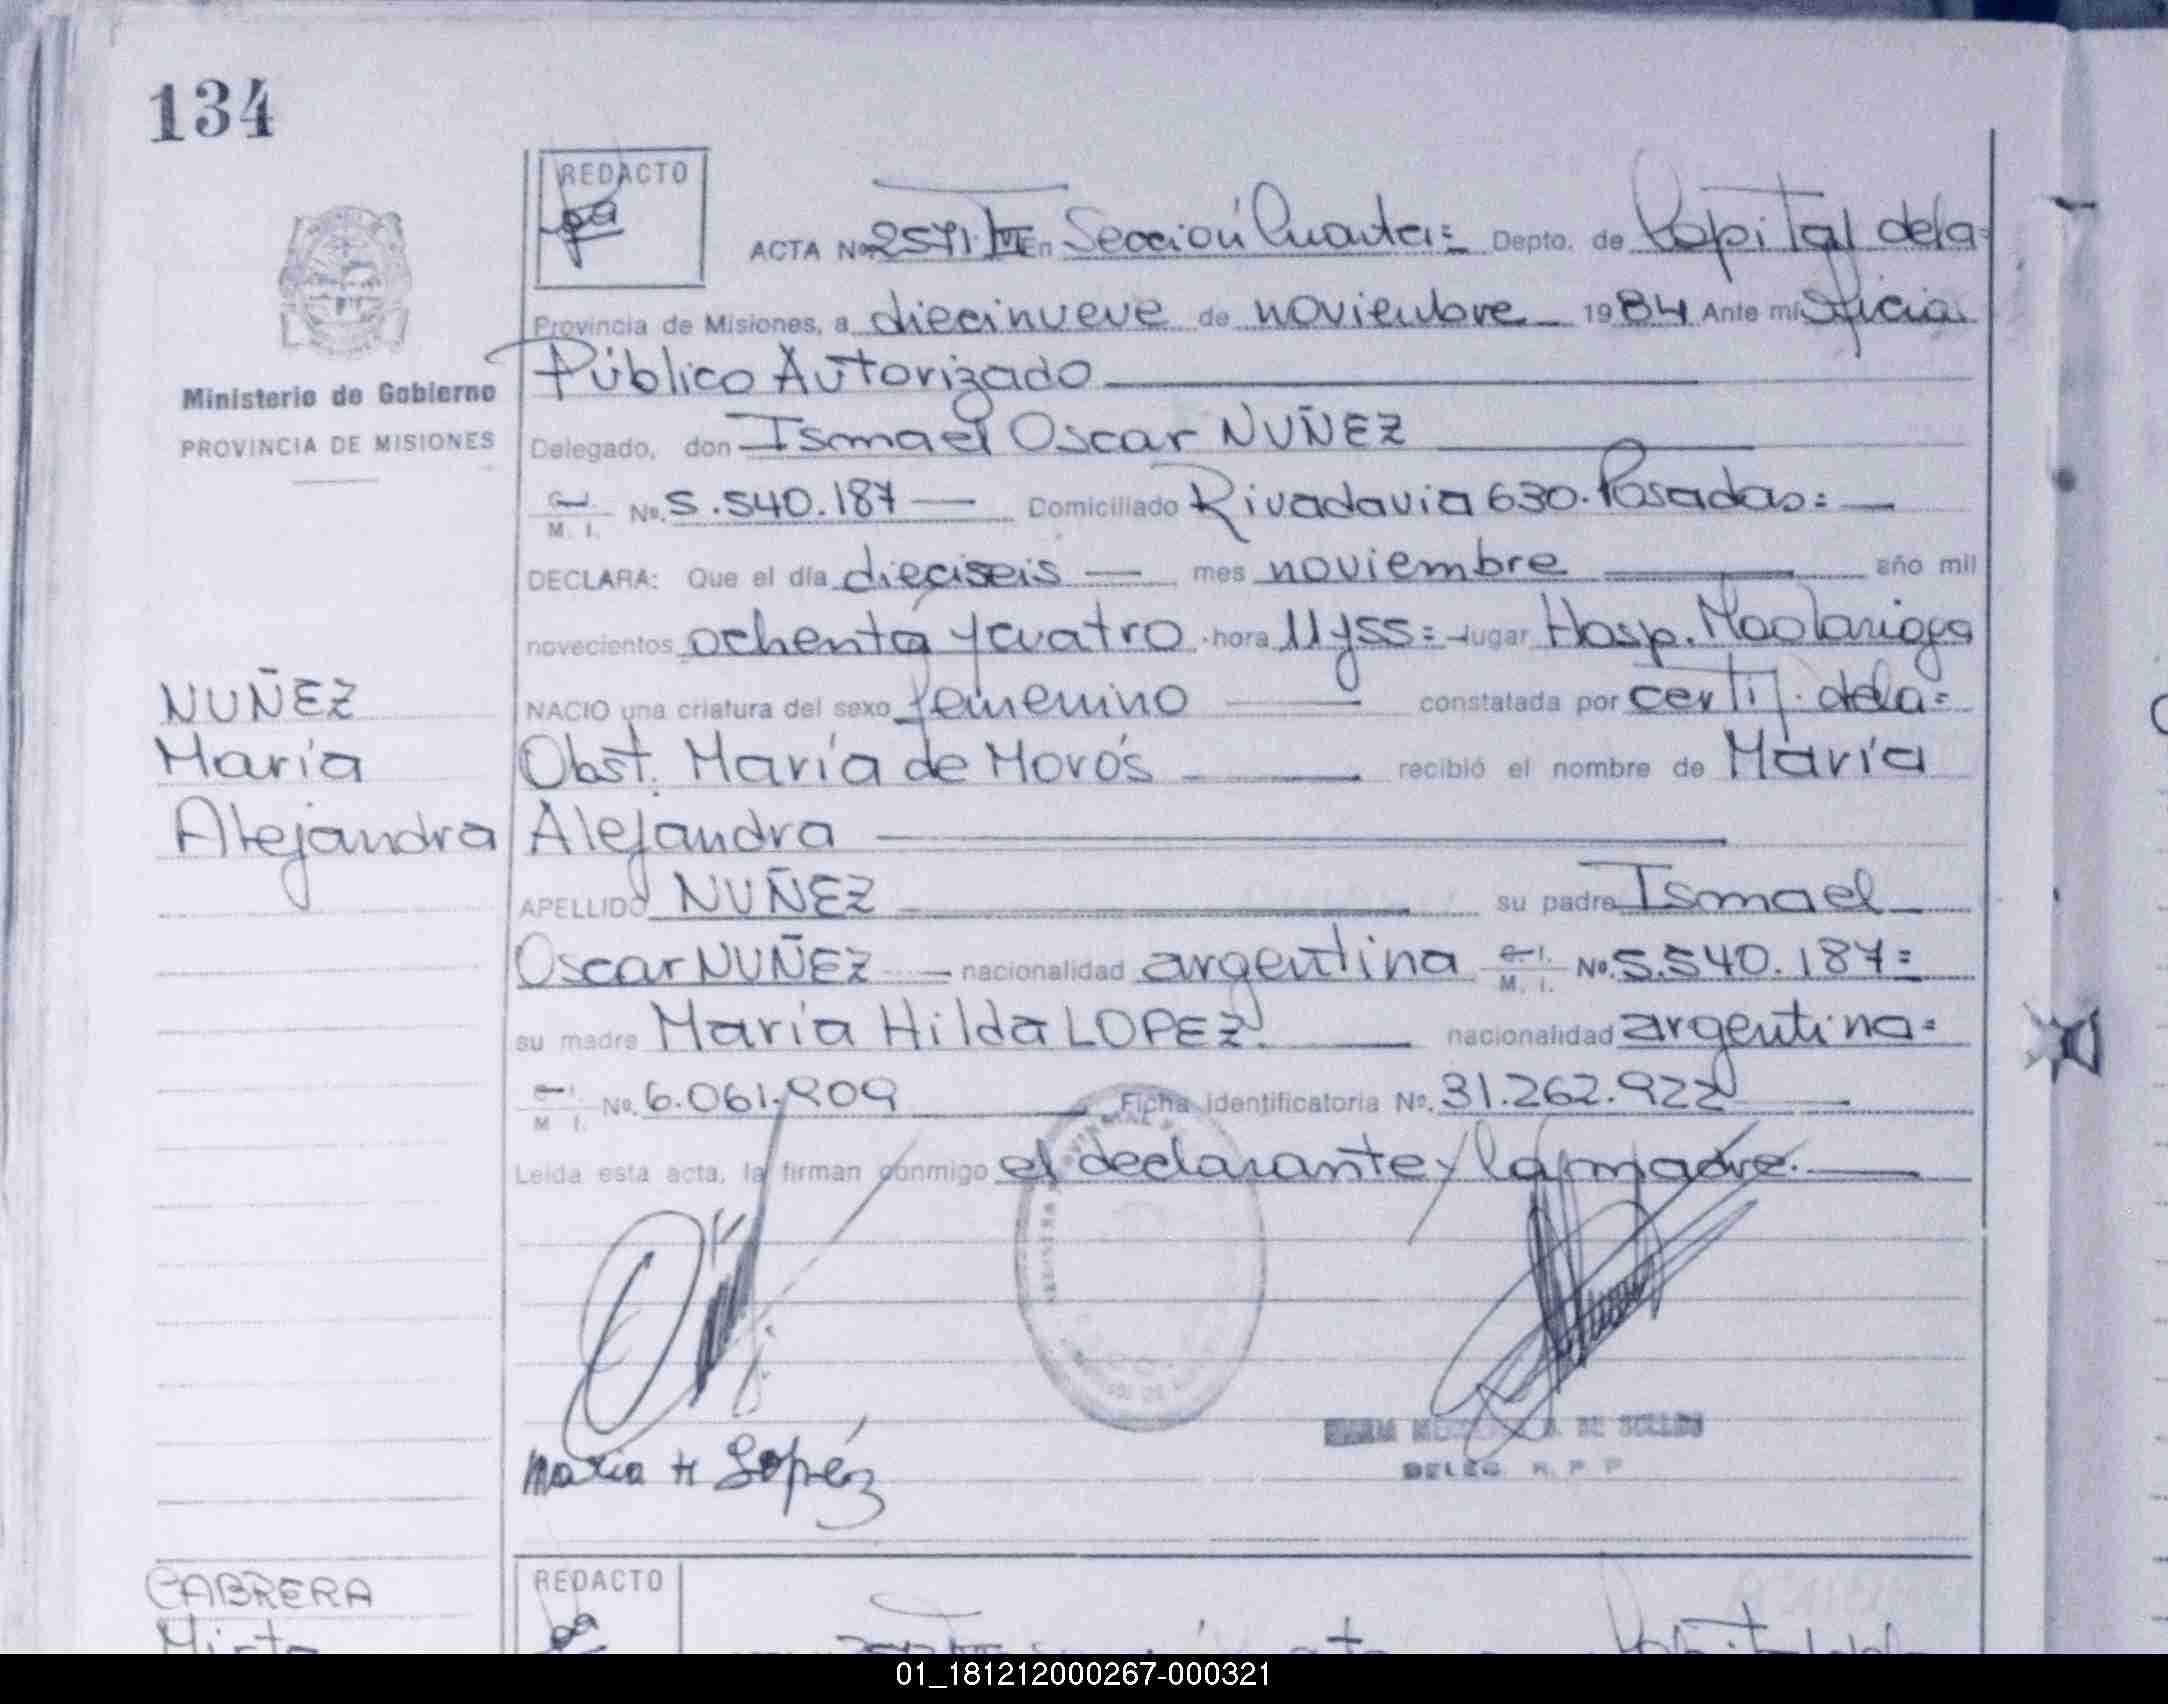 134
REDACTO
ACTA Nº 2571·VII En Sección Cuarta= Depto. de Capital dela=
Provincia de Misiones, a diecinueve de noviembre 1984 Ante mí Oficial
Público Autorizado
Ministerio de Gobierno
PROVINCIA DE MISIONES
Delegado, don Ismael Oscar NUÑEZ
C. I.
M. I. Nº. 5.540.187 Domiciliado Rivadavia 630. Posadas=
DECLARA: Que el día dieciseis mes noviembre año mil
novecientos ochenta y cuatro hora 11 y 55= lugar Hosp. Madariaga
NUÑEZ
María
Alejandra
NACIO una criatura del sexo femenino constatada por certif. dela=
Obst. María de Morós recibió el nombre de María
Alejandra
APELLIDO NUÑEZ su padre Ismael
Oscar NUÑEZ nacionalidad argentina C. I.
M. I. Nº. 5.540.187=
su madre María Hilda LOPEZ. nacionalidad argentina=
C. I.
M. I. Nº. 6.061.909 Ficha identificatoria Nº. 31.262.922
Leída esta acta, la firman conmigo el declarante y la madre.
Maria H Lopéz
DE
DELEG. R. P. P
CABRERA
REDACTO
01_181212000267-000321